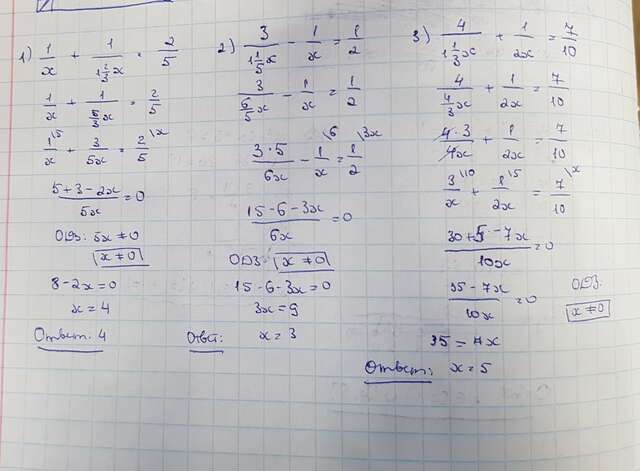 1) 1/x + 1/(1 2/3 x) = 2/5
1/x + 1/(5/3 x) = 2/5
1\5/x + 3/5x = 2\x/5
(5+3-2x)/5x = 0
ОДЗ: 5x ≠ 0
x ≠ 0
8-2x=0
x = 4
Ответ: 4
2) 3/(1 1/5 x) - 1/x = 1/2
3/(6/5 x) - 1/x = 1/2
3·5/6x - 1\6/x = 1\3x/2
(15-6-3x)/6x = 0
ОДЗ: x ≠ 0
15-6-3x=0
3x=9
Ответ: x = 3
3) 4/(1 1/3 x) + 1/2x = 7/10
4/(4/3 x) + 1/2x = 7/10
4·3/4x + 1/2x = 7/10
3\10/x + 1\5/2x = 7\x/10
(30+5-7x)/10x = 0
(35-7x)/10x = 0
ОДЗ:
x ≠ 0
35 = 7x
Ответ: x = 5